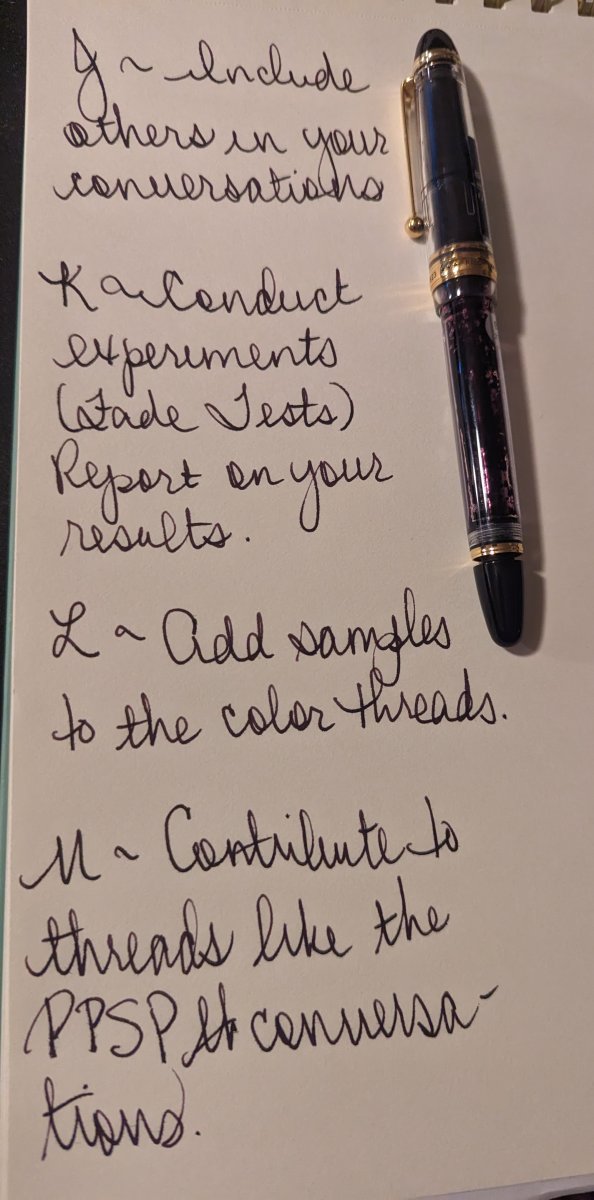 J ~ Include
others in your
conversations
K ~ Conduct
experiments
(Fade Tests)
Report on your
results.
L ~ Add samples
to the color threads.
M ~ Contribute to
threads like the
PPSP & conversa-
tions.